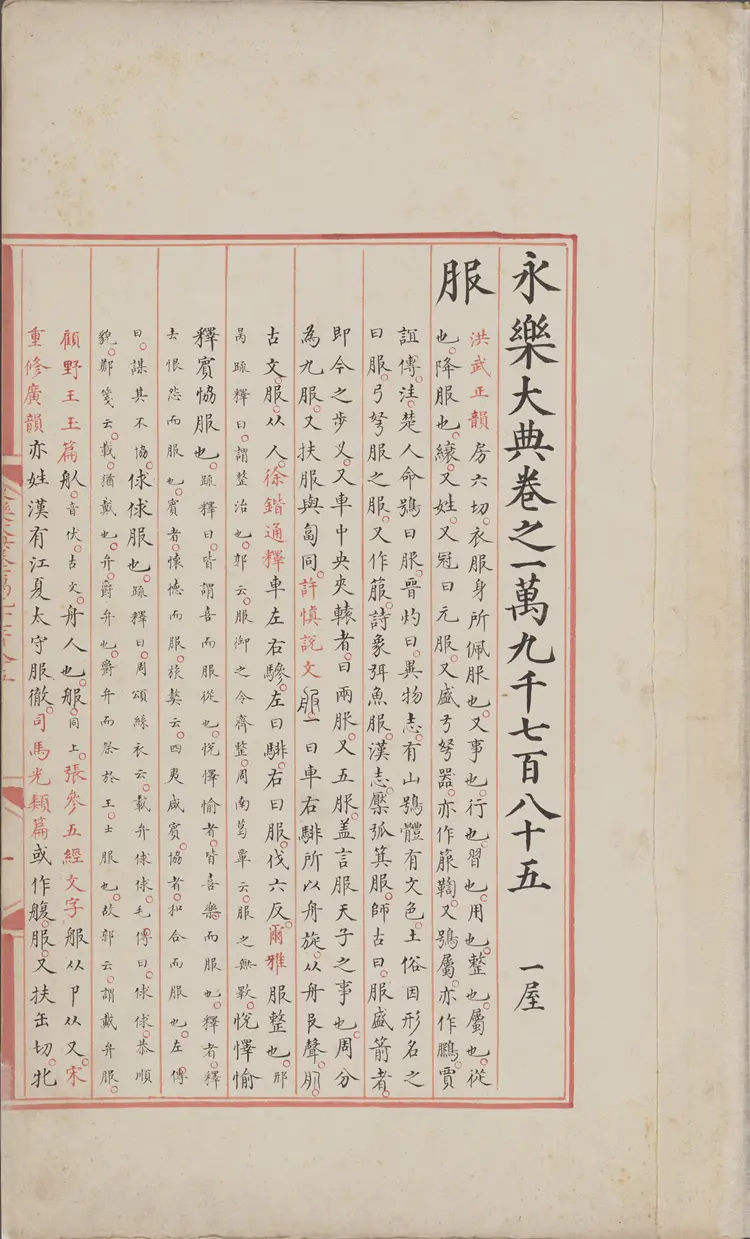 永樂大典卷之一萬九千七百八十五 一屋
服
洪武正韻房六切。衣服身所佩服也。又事也。行也。習也。用也。整也。屬也。從
也。降服也。纕。又姓。又冠曰元服。又盛弓弩器。亦作箙鞴。又鴞屬。亦作鵩。賈
誼傳。注。楚人命鴞曰服。晉灼曰。異物志。有山鴞體有文色。土俗因形名之
曰服。弓弩服之服。又作箙。詩象弭魚服。漢志。檿弧箕服。師古曰。服盛箭者。
即今之步叉。又車中央夾轅者。曰兩服。又五服。蓋言服天子之事也。周分
為九服。又扶服與匐同。許慎說文服一曰車右騑所以舟旋。从舟𠬝聲。
古文。服。从人。徐鍇通釋車左右驂。左曰騑。右曰服。伐六反。爾雅服整也。邢
昺疏釋曰。謂整治也。郭云。服御之令齊整。周南葛覃云。服之無斁。悅懌愉
釋賓恊服也。疏釋曰。皆謂喜而服從也。悅懌愉者。皆喜樂而服也。釋者。釋
去恨怨而服也。賓者。懷德而服。旅獒云。四夷咸賓。協者。和合而服也。左傳
曰。謀其不協。俅俅服也。疏釋曰。周頌絲衣云。載弁俅俅。毛傳曰。俅俅。恭順
貌。鄭箋云。載。猶戴也。弁。爵弁也。爵弁而祭於王。士服也。故郭云。謂戴弁服。
顧野王玉篇音伏。古文。舟人也。服同上。張參五經文字服从卩从又。宋
重修廣韻亦姓漢有江夏太守服徹。司馬光類篇或作服。又扶缶切。牝